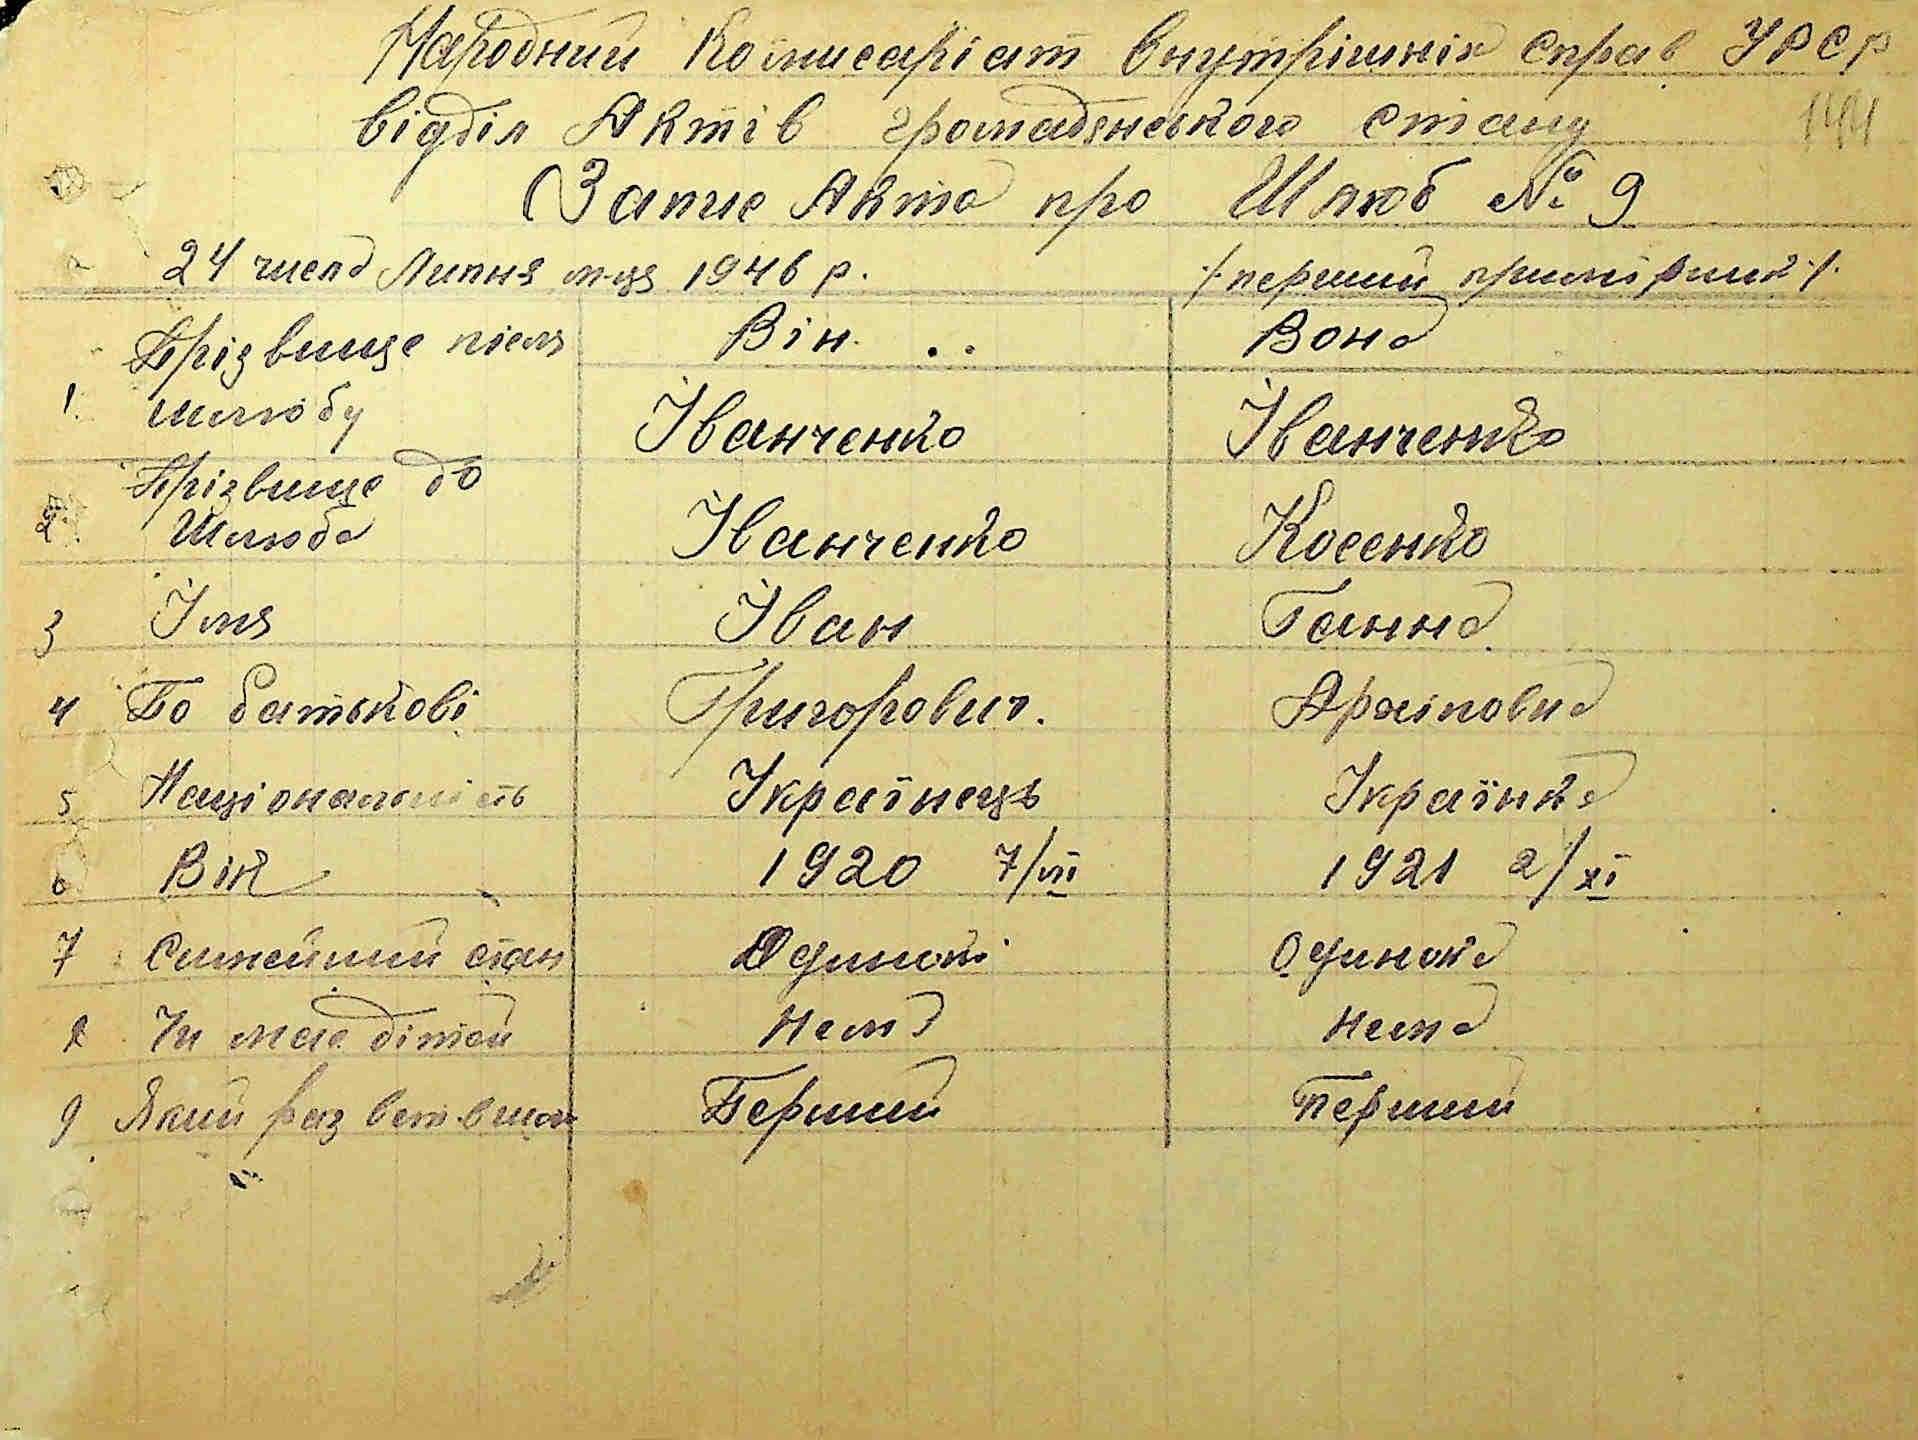 Народний Комисаріат внутрішніх справ УРСР
відділ Актів громадянського стану
144
Запис Акта про Шлюб № 9
24 числа Липня м-ця 1946 р. /перший примірник/
Прізвище після Він. Вона
1. шлюбу Іванченко Іванченко
Прізвище до
2. Шлюба Іванченко Косенко
3 Імя Іван Ганна
4 По батькові Григорович. Архіповна
5 Національність Українець Українка
6 Вік 1920 7/VII 1921 2/XI
7 Симейний стан Одинокі Одинока
8 Чи має дітей Нема Нема
9 Який раз Перший Перший